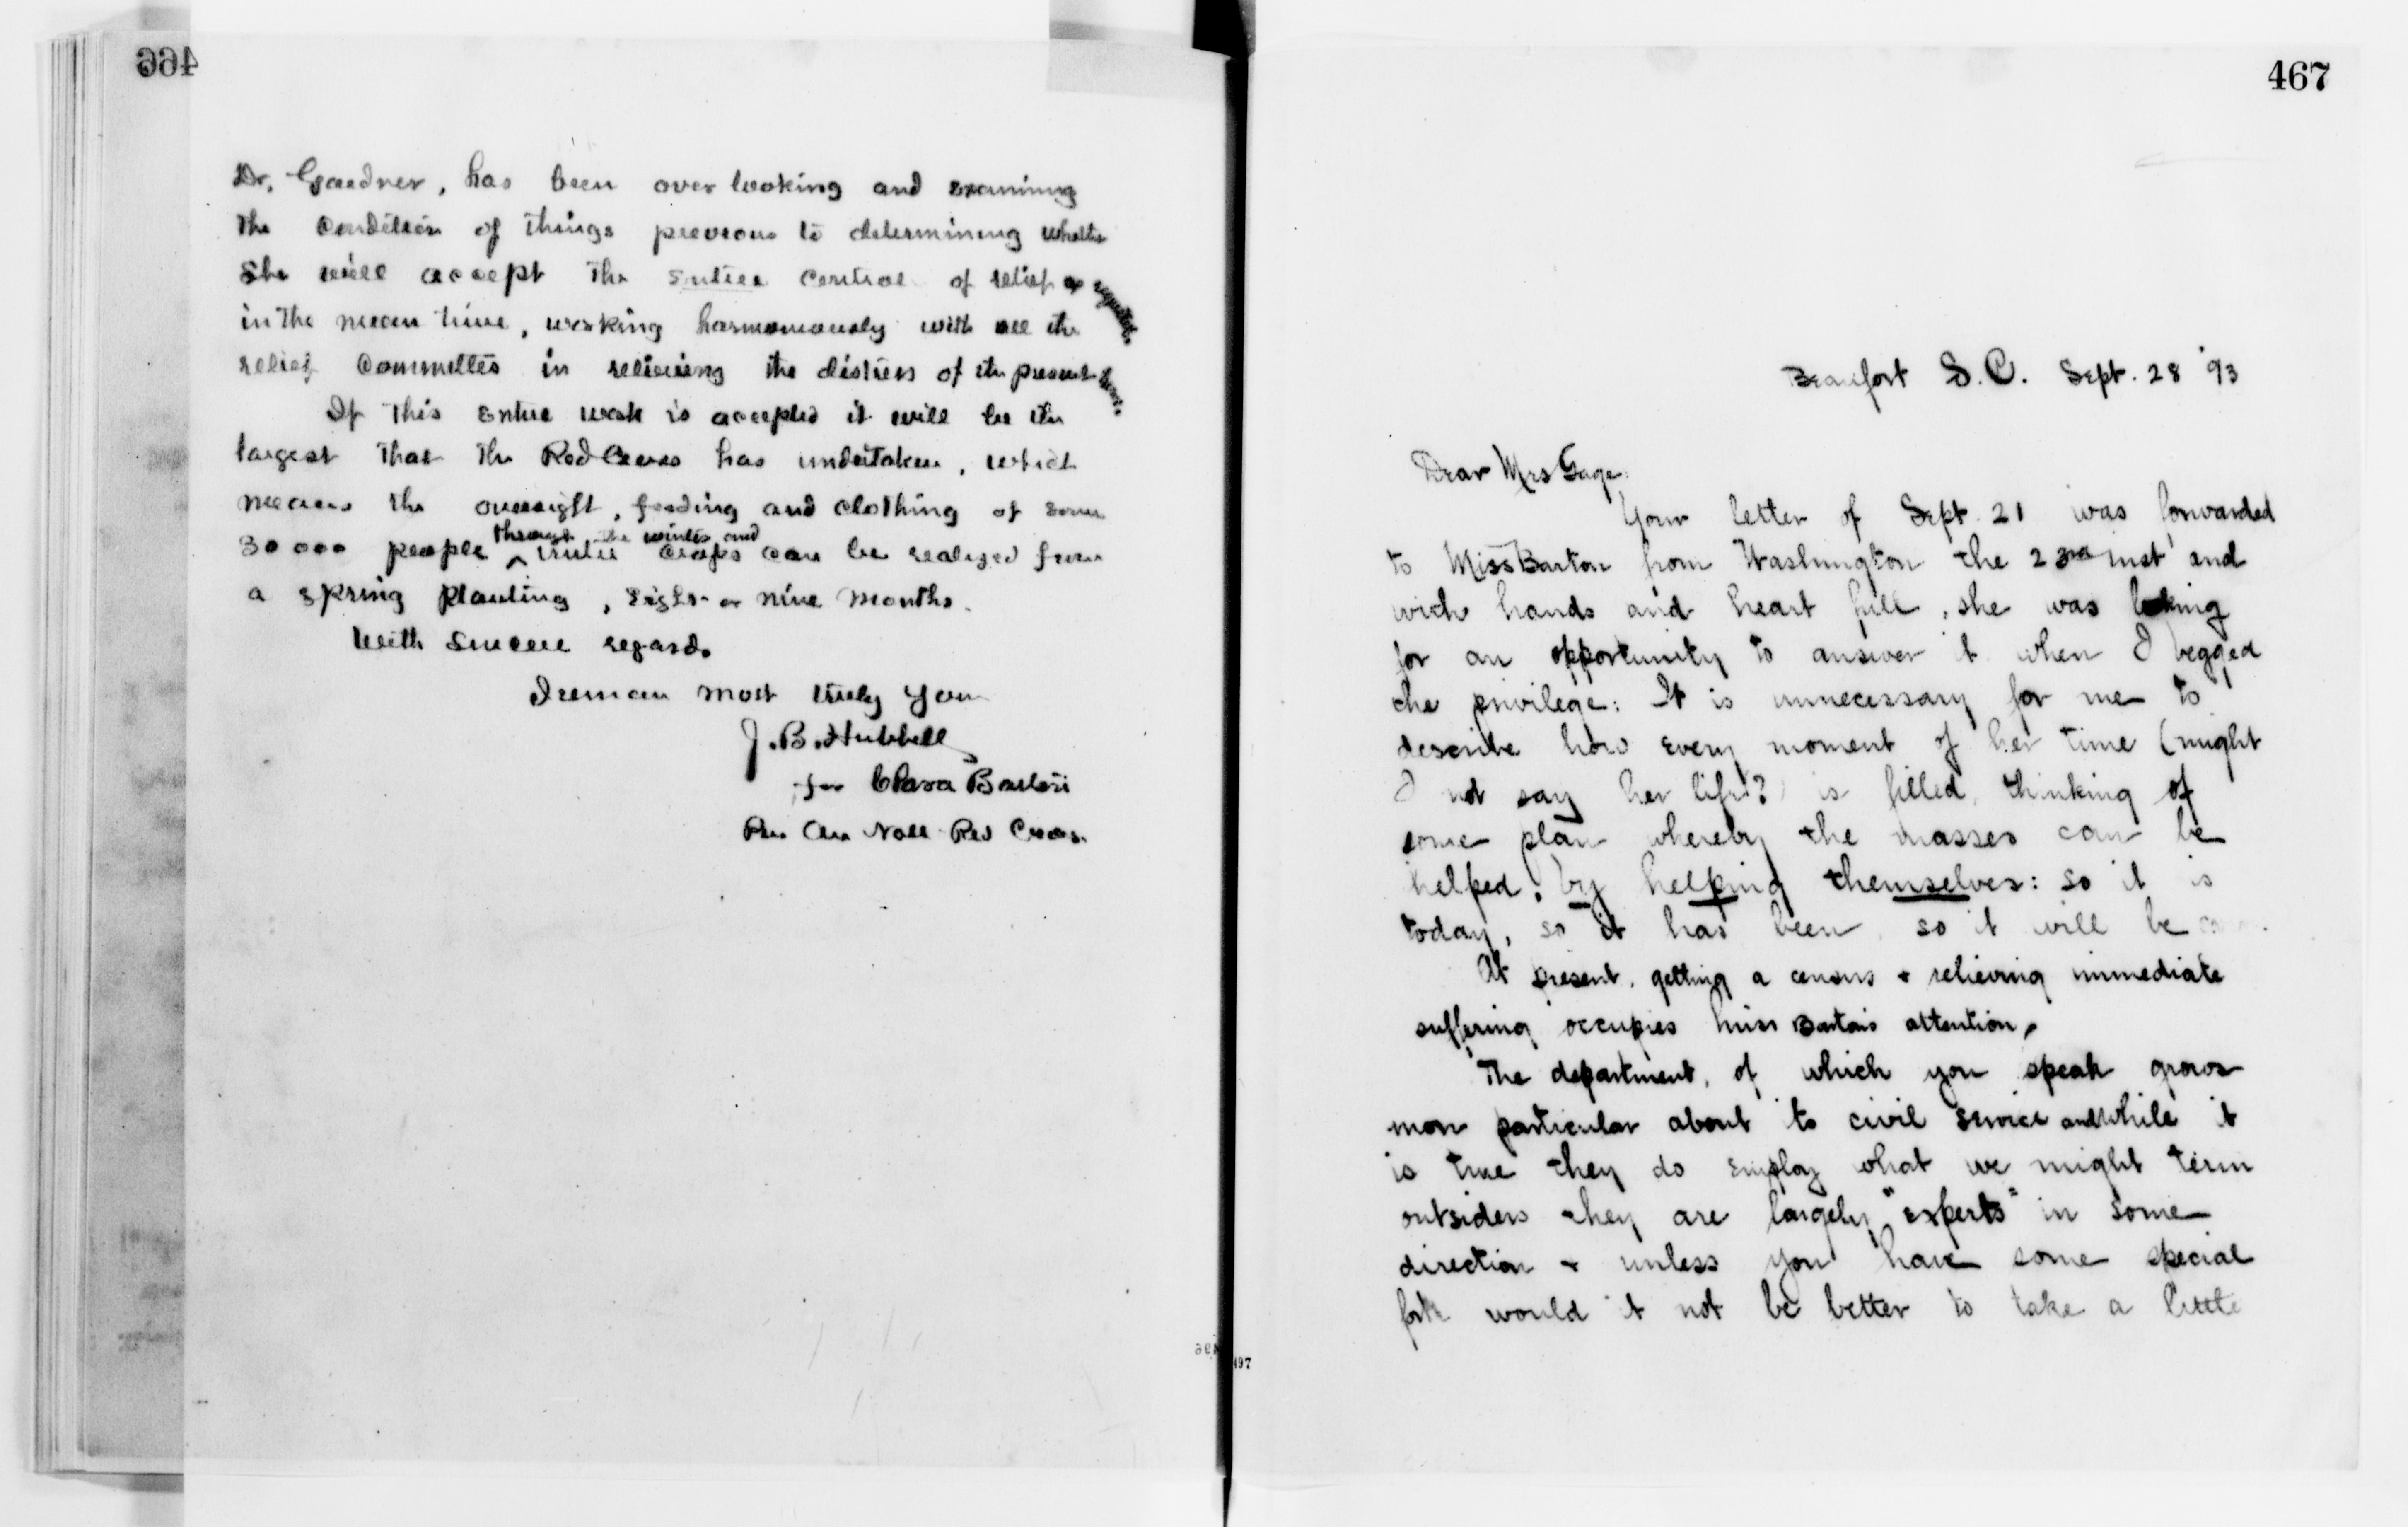 466
Dr. Gardner, has been over looking and examining
the condition of things previous to determining whether
she will accept the entire control of relief as requested,
in the mean time, working harmoniously with all the
relief Committes in relieving the distress of the present hour.
If this entire work is accepted it will be the
largest that the Red Cross has undertaken, which
means the oversight, feeding and clothing of some
through the winter and
30 000 people ^ until crops can be realized from
a spring planting, eight or nine months.
With sincere regards
I remain most truly yours
J. B. Hubbell
for Clara Barton
Pres Am Natl Red Cross.
467
Beaufort S. C. Sept. 28 '93
Dear Mrs Gage:
Your letter of Sept. 21 was forwarded
to Miss Barton from Washington the 23rd inst and
with hands and heart full, she was looking
for an opportunity to answer it when I begged
the privilege: It is unnecessary for me to
describe how every moment of her time (might
I not say her life?) is filled, thinking of
some plan whereby the masses can be
helped, by helping themselves: so it is
today, so it has been, so it will be
At present, getting a census + relieving immediate
suffering occupies Miss Barton's attention.
The department, of which you speak grows
more particular about its civil service and while it
is true they do employ what we might term
outsiders they are largely "experts" in some
direction + unless you have some special
forte would it not be better to take a little
497